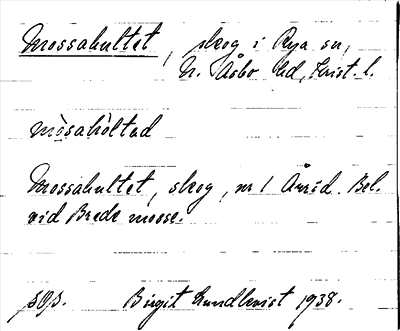 Mossahultet, skog i Rya sn,
N. Åsbo hd, Krist. l.
mòsahòltad
Mossahultet, skog, nr 1 Årröd. Bel.
vid Brede mosse.
Birgit Lundkvist 1938.